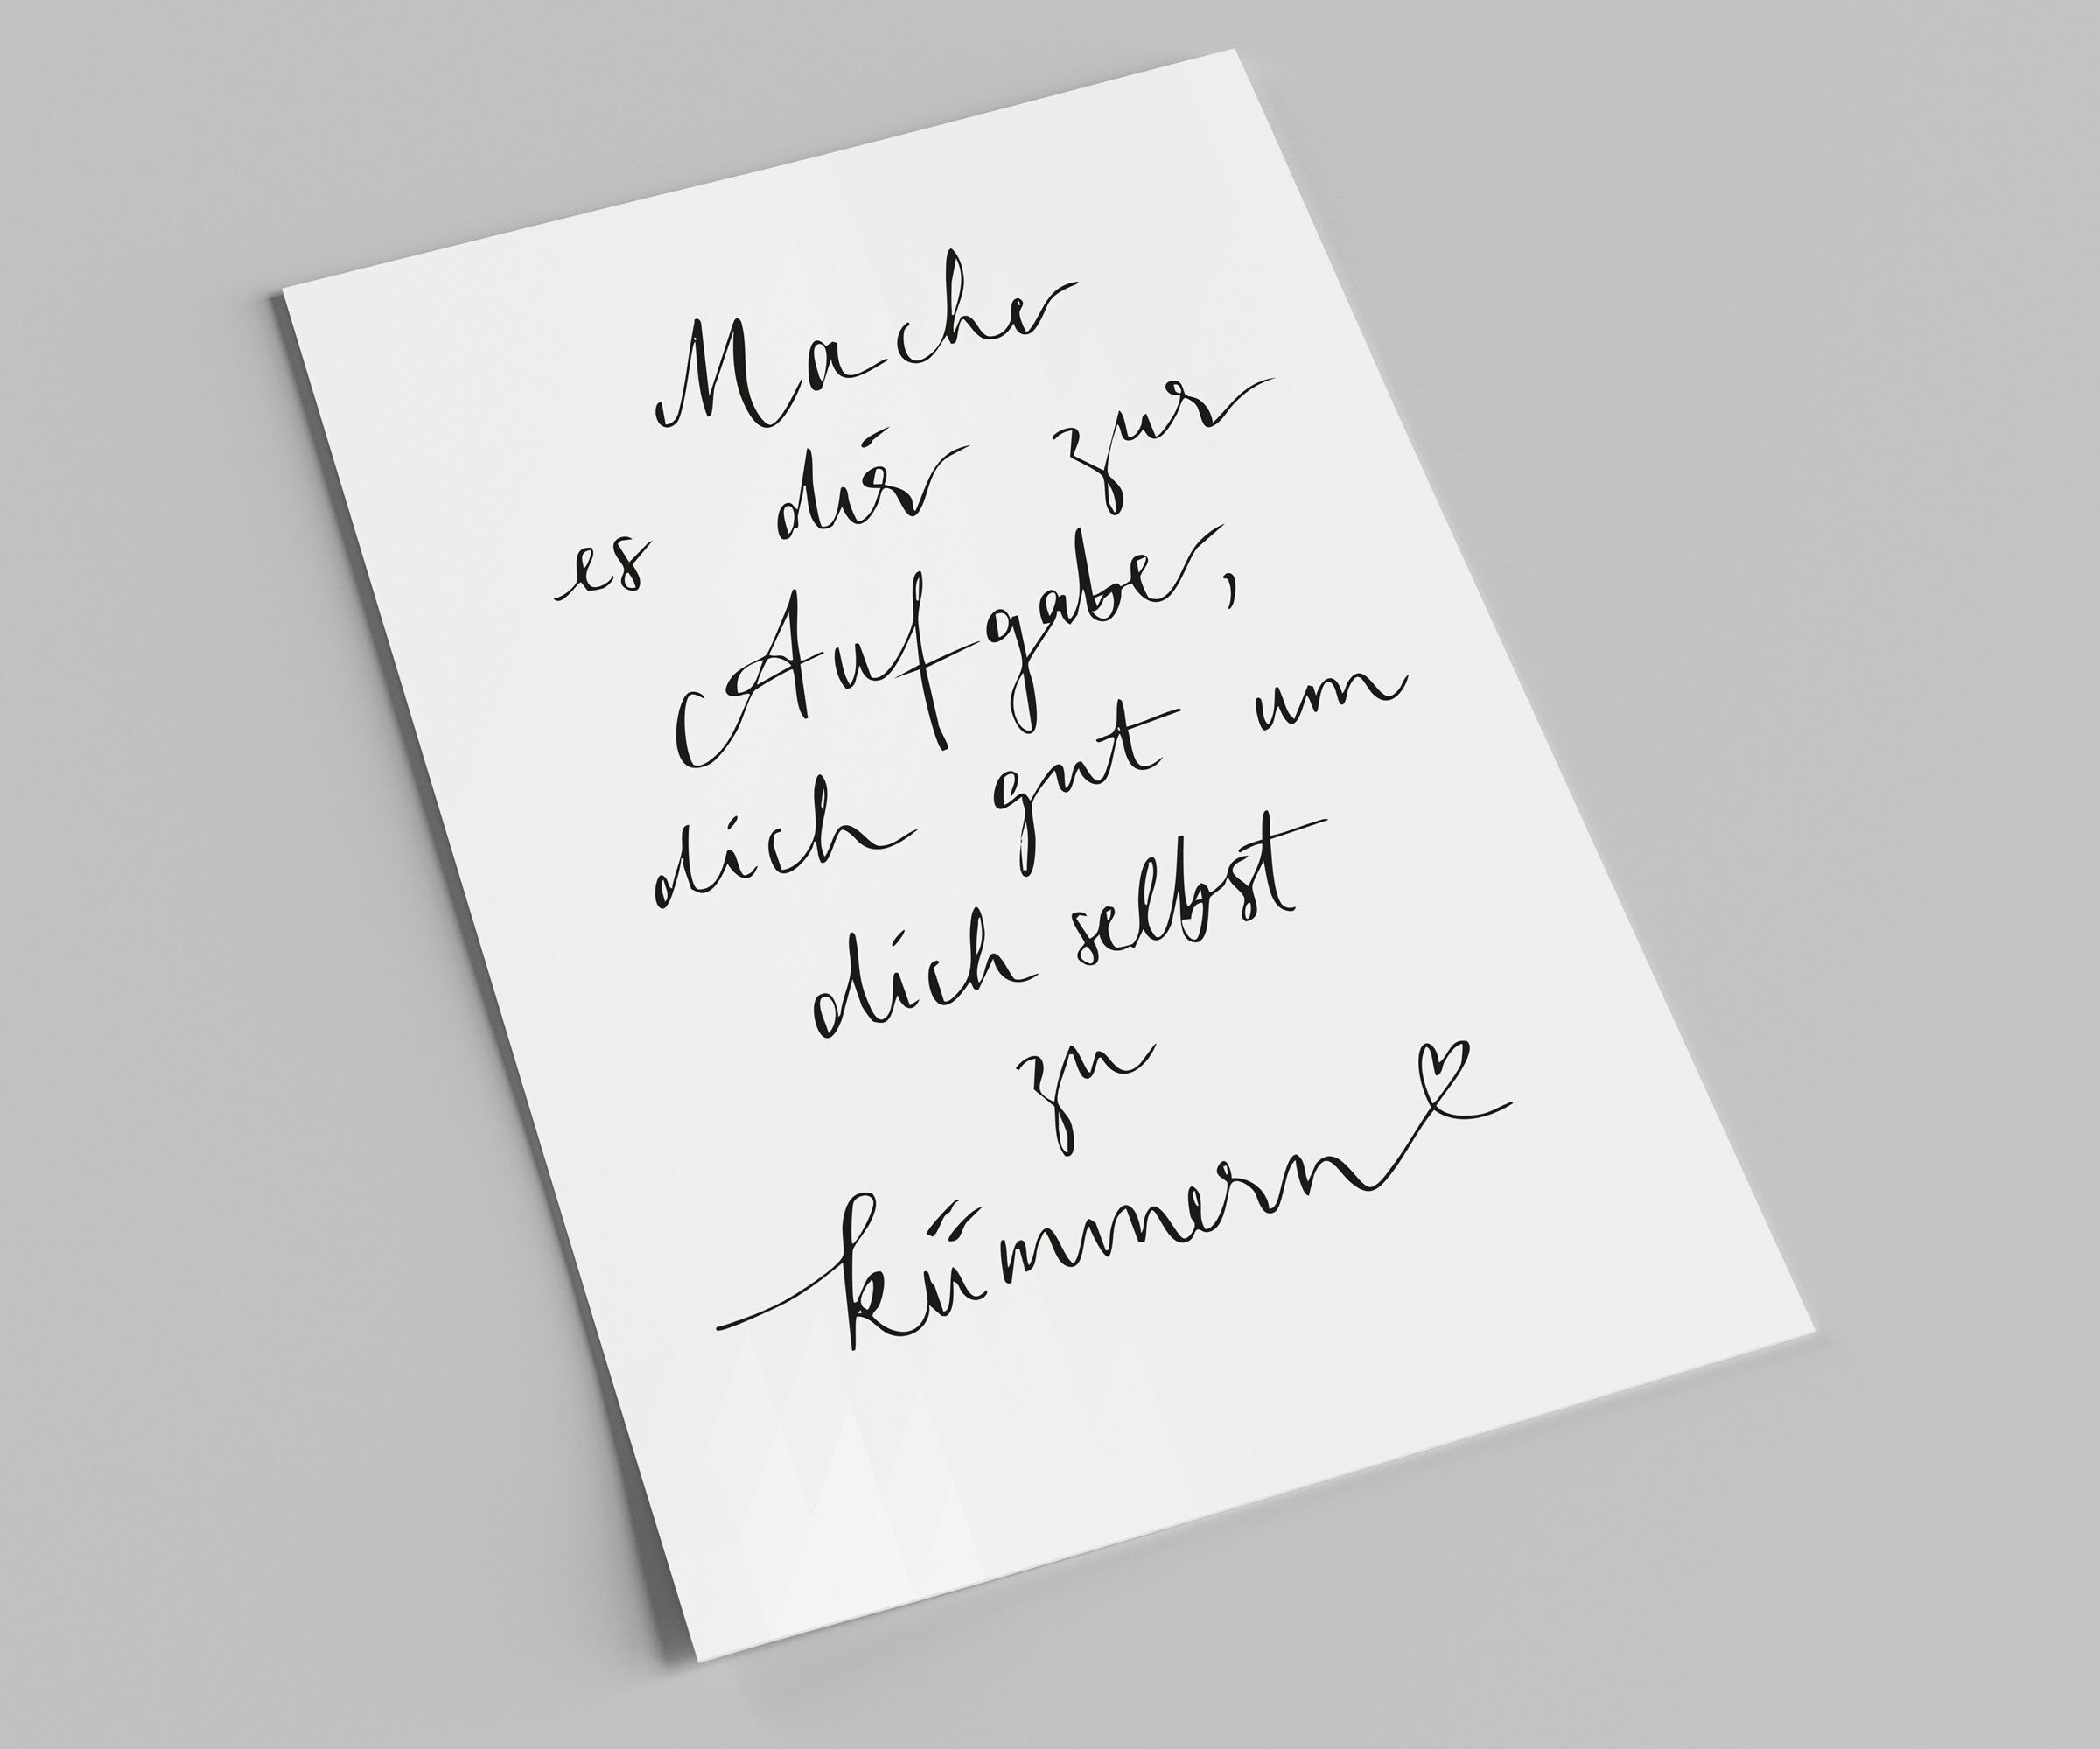 Mache
es dir zur
Aufgabe,
dich gut um
dich selbst
zu
kümmern